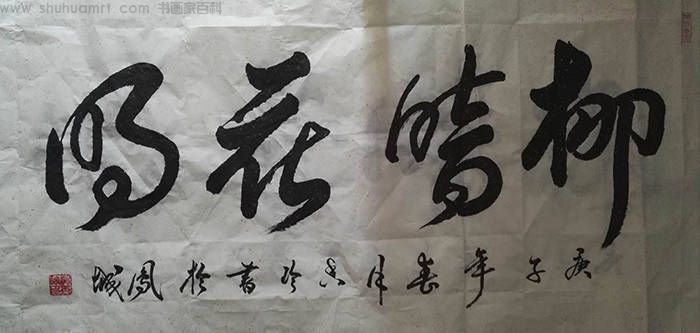 www.shuhuamrt.com 书画家百科
柳暗花明
庚子年春月玲書於鳳城